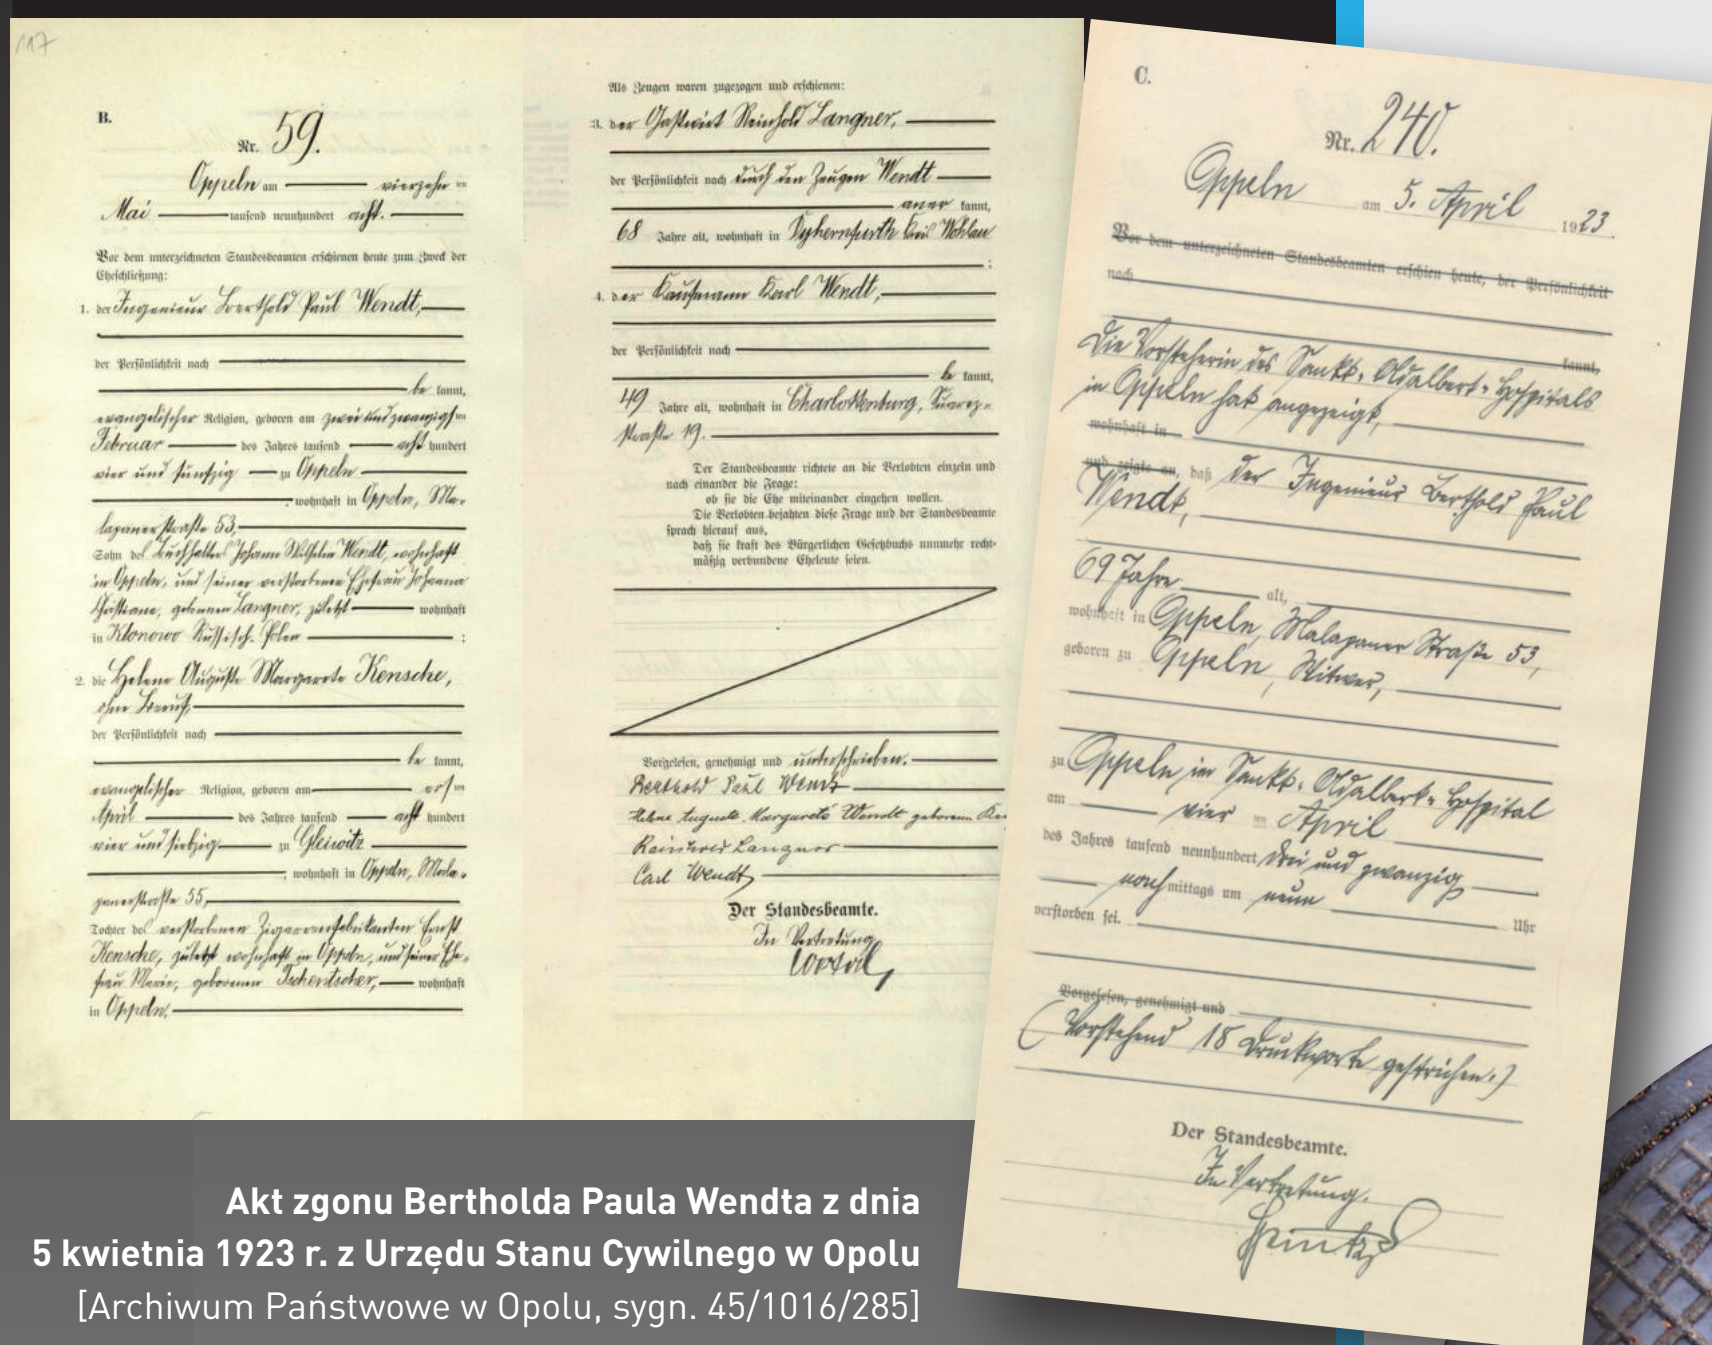 117
B.
Nr. 59.
Oppeln am vierzehn ten
Mai tausend neunhundert acht.
Vor dem unterzeichneten Standesbeamten erschienen heute zum Zweck der
Eheschließung:
1. der Ingenieur Berthold Paul Wendt,
der Persönlichkeit nach
be kannt,
evangelischer Religion, geboren am zwei und zwanzigsten
Februar des Jahres tausend acht hundert
vier und fünfzig zu Oppeln
, wohnhaft in Oppeln, Ma-
lapanerstraße 53,
Sohn des Buchhalters Johann Wilhelm Wendt, wohnhaft
in Oppeln, und seiner verstorbenen Ehefrau Johanna
Christiane, geborenen Langner, zuletzt wohnhaft
in Klonowo Russisch-Polen ;
2. die Helene Auguste Margarete Kensche,
ohne Beruf,
der Persönlichkeit nach
be kannt,
evangelischer Religion, geboren am ersten
April des Jahres tausend acht hundert
vier und siebzig zu Gleiwitz
, wohnhaft in Oppeln, Mala-
panerstraße 55,
Tochter des verstorbenen Zigarrenfabrikanten Ernst
Kensche, zuletzt wohnhaft in Oppeln, und seiner Ehe-
frau Marie, geborenen Tschentscher, wohnhaft
in Oppeln.
Als Zeugen waren zugezogen und erschienen:
3. der Gastwirt Reinhold Langner,
der Persönlichkeit nach durch den Zeugen Wendt
aner kannt,
68 Jahre alt, wohnhaft in Dyhernfurth Kreis Wohlau
;
4. der Kaufmann Karl Wendt,
der Persönlichkeit nach
be kannt,
49 Jahre alt, wohnhaft in Charlottenburg, Suarez-
straße 19.
Der Standesbeamte richtete an die Verlobten einzeln und
nach einander die Frage:
ob sie die Ehe miteinander eingehen wollen.
Die Verlobten bejahten diese Frage und der Standesbeamte
sprach hierauf aus,
daß sie kraft des Bürgerlichen Gesetzbuchs nunmehr recht-
mäßig verbundene Eheleute seien.
Vorgelesen, genehmigt und unterschrieben.
Berthold Paul Wendt
Helene Auguste Margarete Wendt geborene Ken
Reinhold Langner
Carl Wendt
Der Standesbeamte.
In Vertretung
C.
Nr. 240.
Oppeln am 5. April 1923.
Vor dem unterzeichneten Standesbeamten erschien heute, der Persönlichkeit
nach
kannt,
Die Vorsteherin des Sankt-Adalbert-Hospitals
in Oppeln hat angezeigt,
wohnhaft in
und zeigte an, daß der Ingenieur Berthold Paul
Wendt,
69 Jahre alt,
wohnhaft in Oppeln, Malapaner Straße 53,
geboren zu Oppeln, Witwer,
zu Oppeln im Sankt-Adalbert-Hospital
am vier ten April
des Jahres tausend neunhundert drei und zwanzig
nach mittags um neun Uhr
verstorben sei.
Vorgelesen, genehmigt und
(Vorstehend 18 Druckworte gestrichen.)
Der Standesbeamte.
In Vertretung.
Akt zgonu Bertholda Paula Wendta z dnia
5 kwietnia 1923 r. z Urzędu Stanu Cywilnego w Opolu
[Archiwum Państwowe w Opolu, sygn. 45/1016/285]